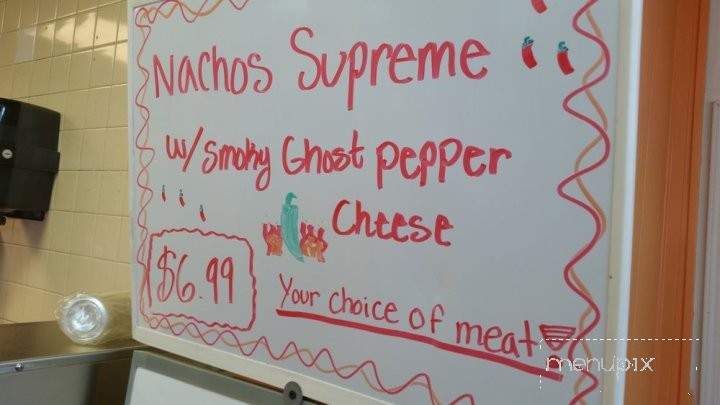 Nachos Supreme
w/ Smoky Ghost pepper
Cheese
$6.99
Your choice of meat
menupix